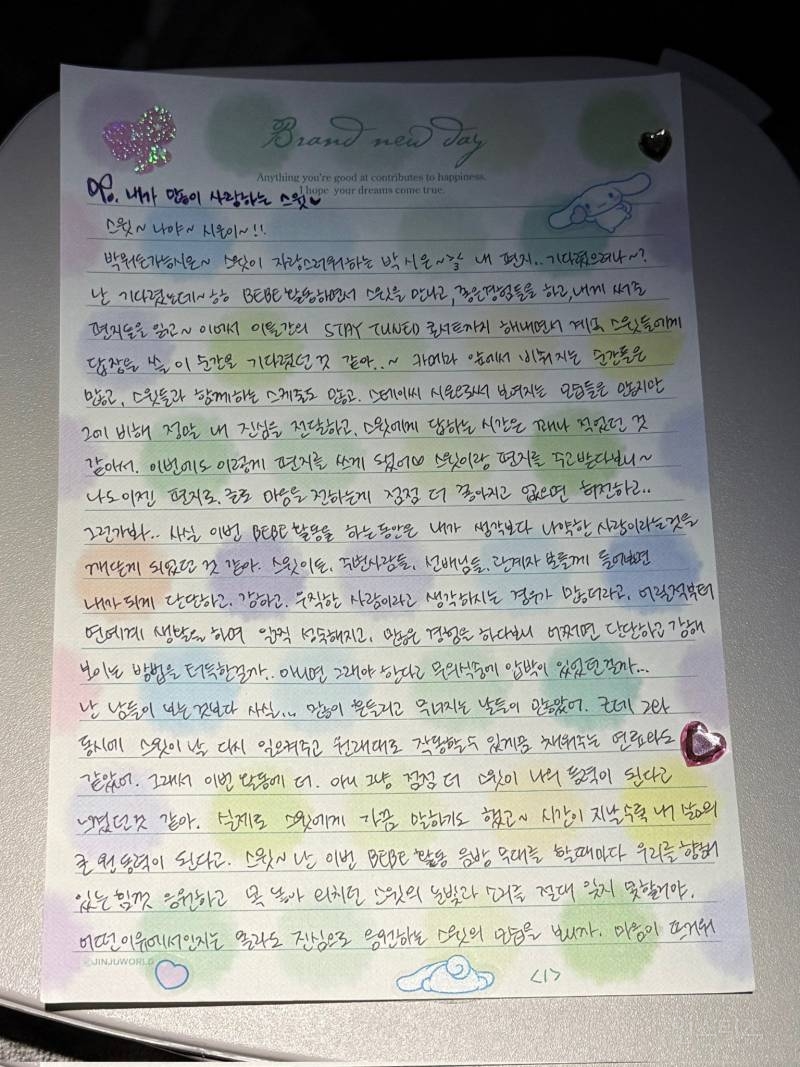 Brand new day
Anything you're good at contributes to happiness.
I hope your dreams come true.
To. 내가 많이 사랑하는 스윗♥
스윗~ 나야~ 시은이~!!
박워든가능시은~ 스윗이 자랑스러워하는 박시은~ 내 편지.. 기다렸으려나~?
난 기다렸는데~ ㅎㅎ BEBE 활동하면서 스윗을 만나고, 좋은경험들을 하고, 내게 써준
편지들을 읽고~ 이어서 이틀간의 STAY TUNED 콘서트까지 해내면서 계속 스윗들에게
답장을 쓸 이 순간을 기다렸던 것 같아..~ 카메라 앞에서 비춰지는 순간들은
많고, 스윗들과 함께하는 스케줄도 많고. 스테이씨 시은으로서 보여지는 모습들은 많지만
그에 비해 정말 내 진심을 전달하고, 스윗에게 답하는 시간은 꽤나 적었던 것
같아서. 이번에도 이렇게 편지를 쓰게 됐어♡ 스윗이랑 편지를 주고받다보니~
나도 이젠 편지로, 글로 마음을 전하는게 점점 더 좋아지고 없으면 허전하고..
그런가봐.. 사실 이번 BEBE 활동을 하는동안은 내가 생각보다 나약한 사람이라는것을
깨닫게 되었던 것 같아. 스윗이든, 주변사람들, 선배님들, 관계자 분들께 들어보면
내가 되게 단단하고, 강하고, 우직한 사람이라고 생각하시는 경우가 많더라고. 어릴적부터
연예계 생활을 하며 일찍 성숙해지고, 많은 경험을 하다보니 어쩌면 단단하고 강해
보이는 방법을 터득한걸까.. 아니면 그래야 한다고 무의식중에 압박이 있었던걸까...
난 남들이 보는것보다 사실... 많이 흔들리고 무너지는 날들이 많았어. 근데 그와
동시에 스윗이 날 다시 일으켜주고 원래대로 작동할수 있게끔 채워주는 연료와도
같았어. 그래서 이번 활동에 더. 아니 그냥 점점 더 스윗이 나의 동력이 된다고
느꼈던것 같아. 실제로 스윗에게 가끔 말하기도 했고~ 시간이 지날수록 내 삶의
큰 원동력이 된다고. 스윗~ 난 이번 BEBE 활동 음방 무대를 할때마다 우리를 향해
있는 힘껏 응원하고 목 놓아 외치던 스윗의 눈빛과 소리를 절대 잊지 못할거야.
어떤이유에서인지는 몰라도 진심으로 응원하는 스윗의 모습을 보니까. 마음이 뜨거워
©JINJUWORLD
<1>